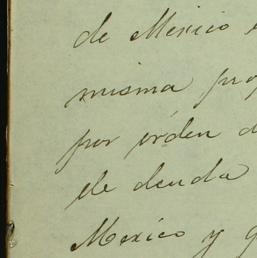 de Mexico
misma
por orden
de deuda
Mexico y